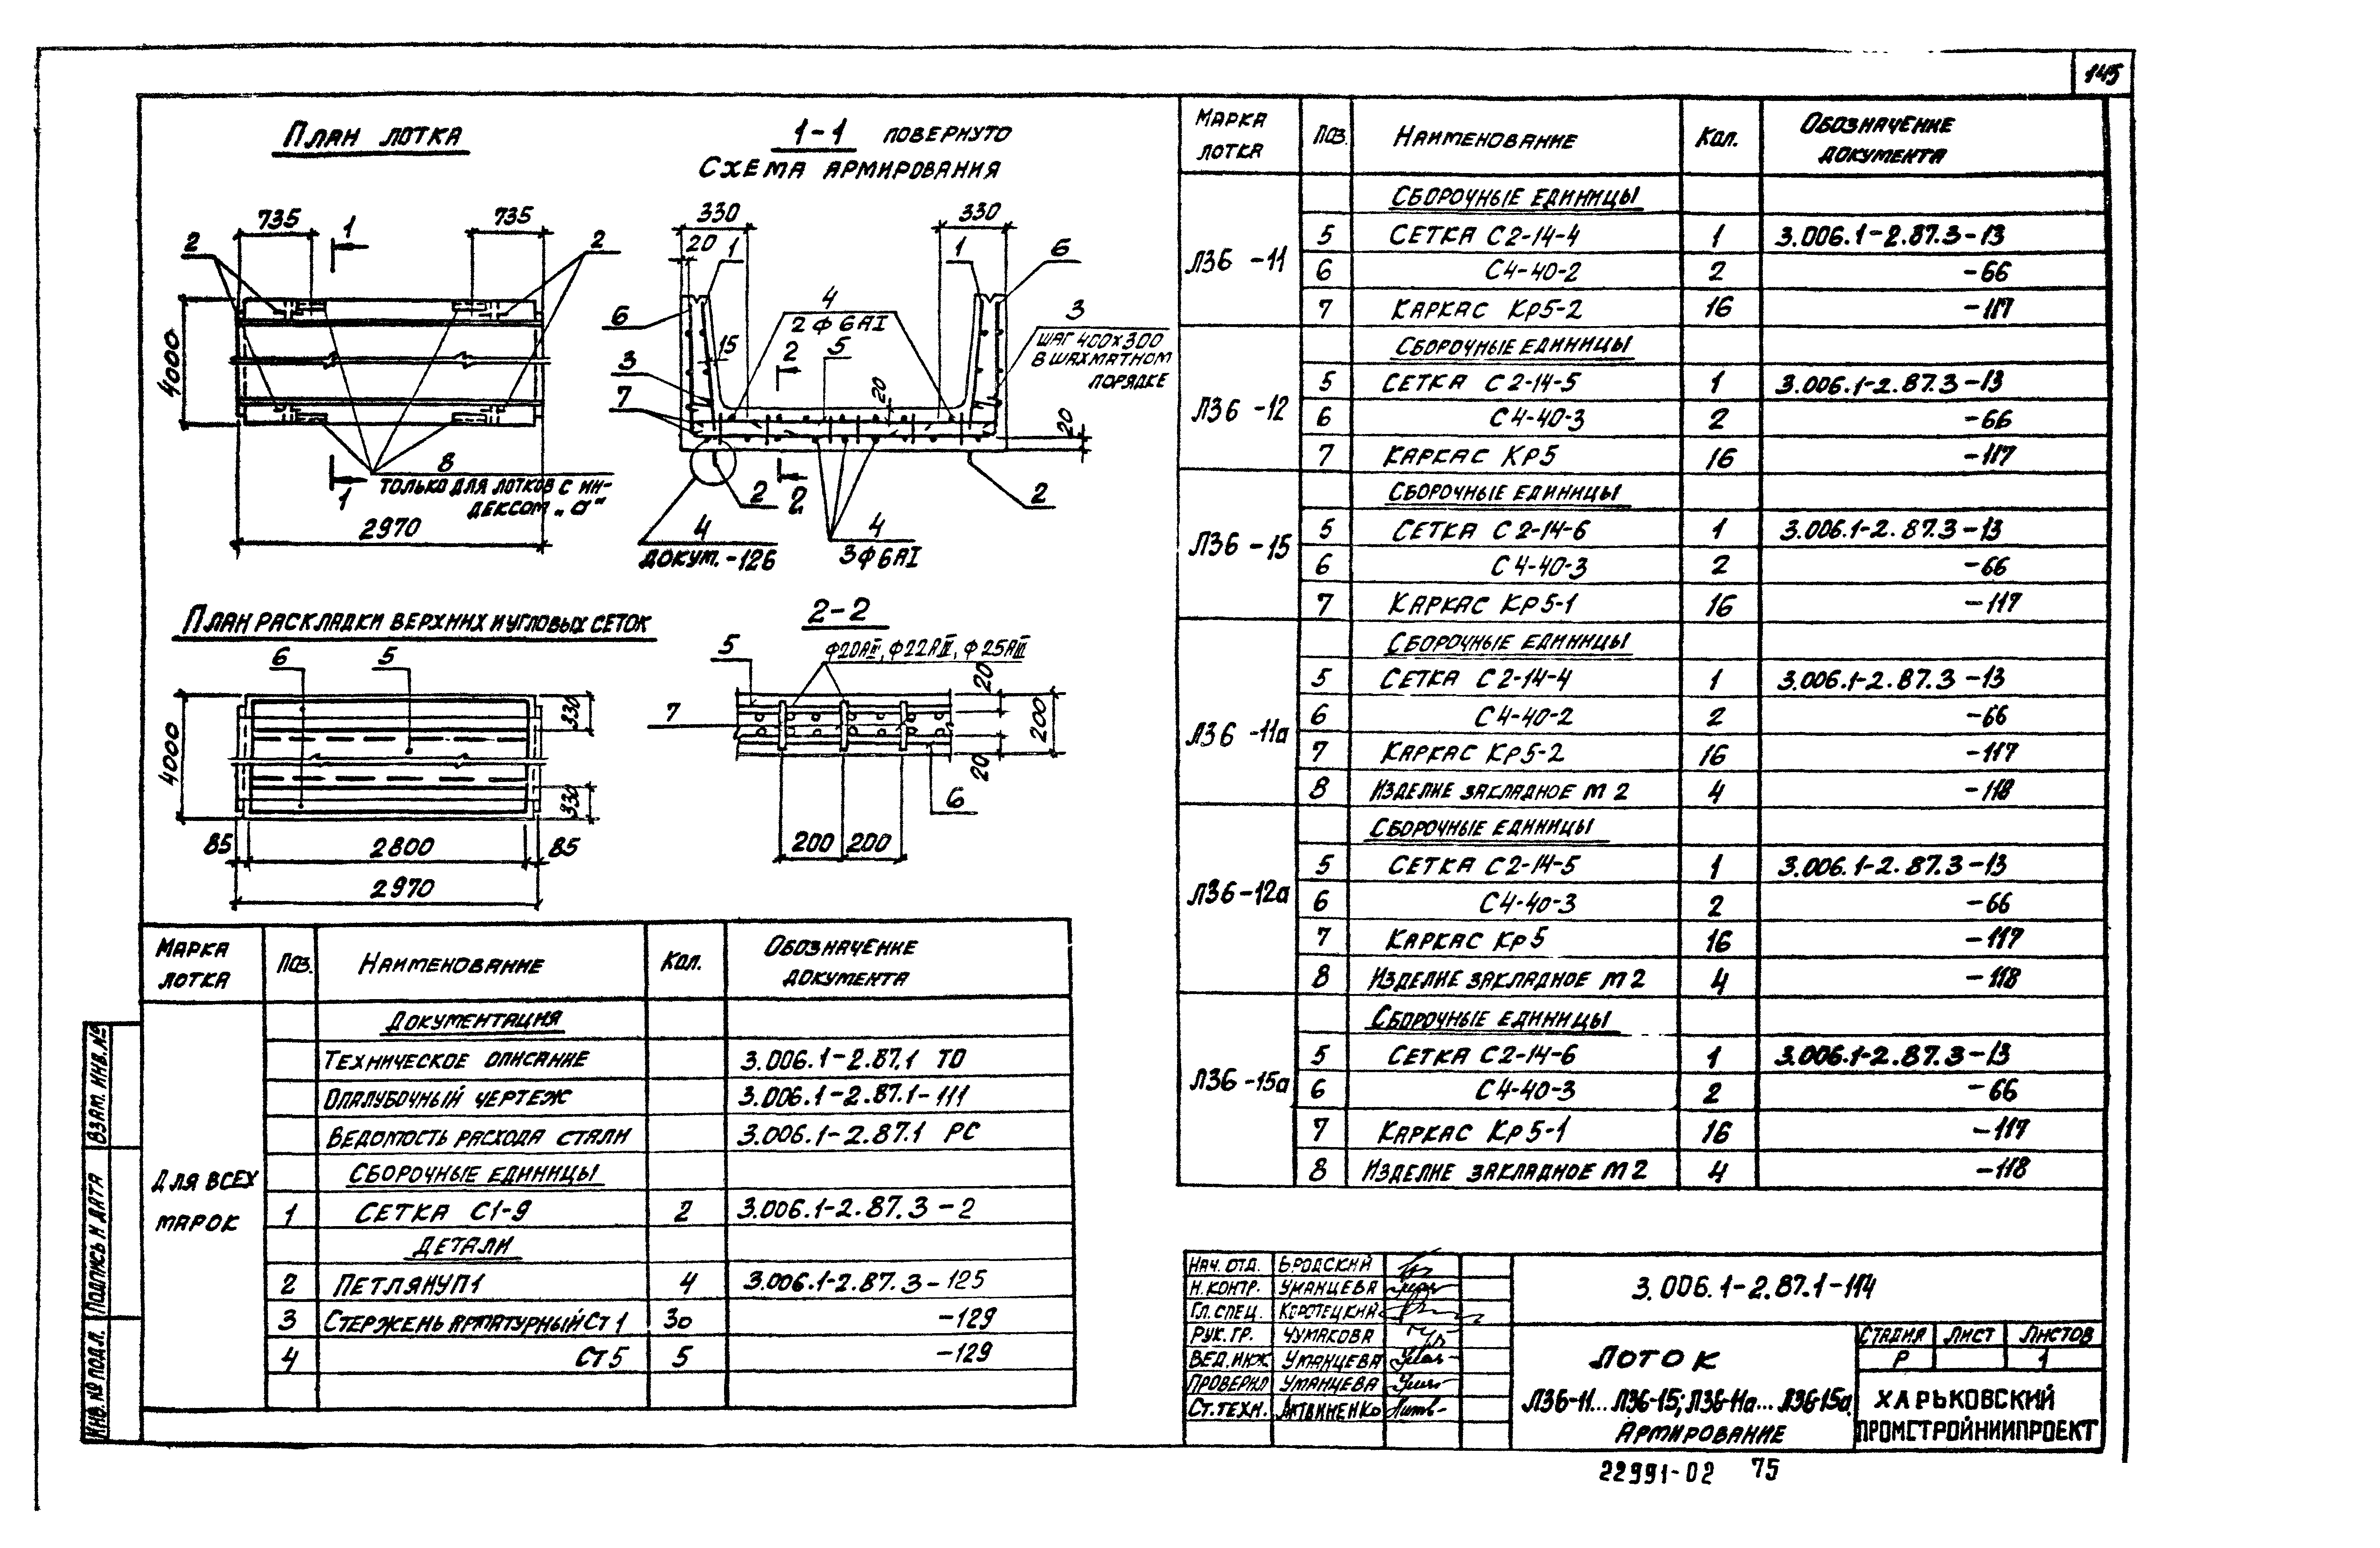 145
План лотка
735
735
1
2
2
4000
8
только для лотков с ин-
дексом „а“
1
2970
1-1 повернуто
Схема армирования
330
330
20
1
1
6
6
4
2φ6АI
3
шаг 400х300
в шахматном
порядке
15
2
5
3
7
20
20
2
2
2
4
докум. -126
4
3φ6АI
План раскладки верхних и угловых сеток
6
5
4000
330
330
85
2800
85
2970
2-2
5
φ20АIII, φ22АIII, φ25АIII
7
20
200
20
6
200
200
Марка лотка Поз. Наименование Кол. Обозначение документа
Документация
Техническое описание 3.006.1-2.87.1 ТО
Опалубочный чертеж 3.006.1-2.87.1-111
Ведомость расхода стали 3.006.1-2.87.1 РС
Сборочные единицы
Для всех марок
1 Сетка С1-9 2 3.006.1-2.87.3-2
Детали
2 Петля УП1 4 3.006.1-2.87.3-125
3 Стержень арматурный Ст 1 30 -129
4 Ст 5 5 -129
Марка лотка Поз. Наименование Кол. Обозначение документа
Л36-11
Сборочные единицы
5 Сетка С2-14-4 1 3.006.1-2.87.3-13
6 С4-40-2 2 -66
7 Каркас Кр5-2 16 -117
Л36-12
Сборочные единицы
5 Сетка С2-14-5 1 3.006.1-2.87.3-13
6 С4-40-3 2 -66
7 Каркас Кр5 16 -117
Л36-15
Сборочные единицы
5 Сетка С2-14-6 1 3.006.1-2.87.3-13
6 С4-40-3 2 -66
7 Каркас Кр5-1 16 -117
Л36-11а
Сборочные единицы
5 Сетка С2-14-4 1 3.006.1-2.87.3-13
6 С4-40-2 2 -66
7 Каркас Кр5-2 16 -117
8 Изделие закладное М2 4 -118
Л36-12а
Сборочные единицы
5 Сетка С2-14-5 1 3.006.1-2.87.3-13
6 С4-40-3 2 -66
7 Каркас Кр5 16 -117
8 Изделие закладное М2 4 -118
Л36-15а
Сборочные единицы
5 Сетка С2-14-6 1 3.006.1-2.87.3-13
6 С4-40-3 2 -66
7 Каркас Кр5-1 16 -117
8 Изделие закладное М2 4 -118
Взам. инв. №
Подпись и дата
Инв. № подл.
Нач. отд. Бродский
Н. контр. Уманцева
Гл. спец. Коротецкий
Рук. гр. Чумакова
Вед. инж Уманцева
Проверил Уманцева
Ст. техн. Литвиненко
3.006.1-2.87.1-114
Лоток
Л36-11... Л36-15; Л36-11а... Л36-15а
Армирование
Стадия Лист Листов
Р 1
Харьковский
Промстройниипроект
22991-02 75